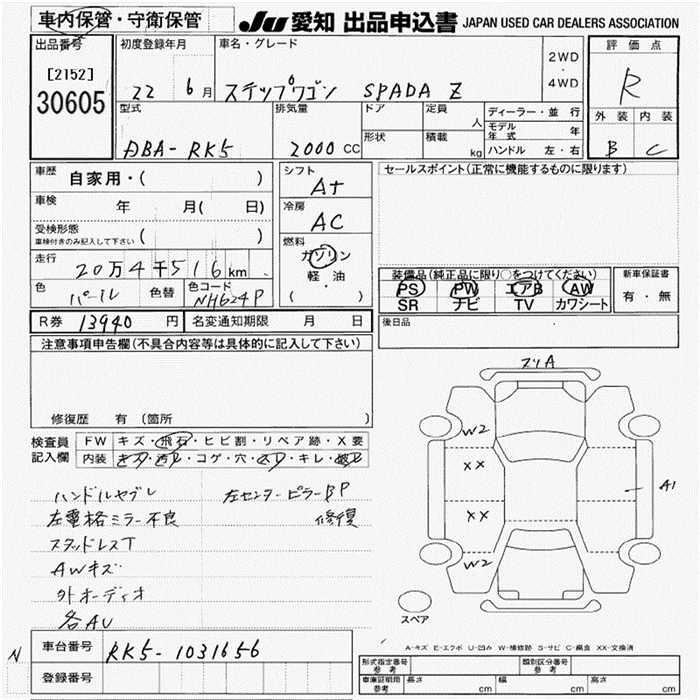 車内保管・守衛保管 JU 愛知 出品申込書 JAPAN USED CAR DEALERS ASSOCIATION
出品番号 初度登録年月 車名・グレード 評価点
[2152] 2WD
30605 22 6月 ステップワゴン SPADA Z ・ R
4WD
型式 排気量 ドア 定員 人 ディーラー・並行 外装 内装
モデル年式 年
DBA-RK5 2000 CC 形状 積載 kg ハンドル 左・右 B C
車歴 自家用・( ) シフト セールスポイント(正常に機能するものに限ります)
AT
車検 年 月( 日) 冷房
AC
受検形態 ( )
車検付きのみ記入して下さい
燃料
走行 20万4千516km ガソリン
軽・油
( ・ )
色 パール 色替 色コード NH624P
装備品(純正品に限り○をつけてください) 新車保証書
PS PW エアB AW 有・無
SR ナビ TV カワシート
R券 13940 円 名変通知期限 月 日 後日品
注意事項申告欄(不具合内容等は具体的に記入して下さい)
修復歴 有 (箇所 )
検査員 FW キズ・飛石・ヒビ割・リペア跡・X要
記入欄 内装 キズ・汚レ・コゲ・穴・スレ・キレ・破レ
ハンドルヤブレ 左センターピラーBP
左電格ミラー不良 修復
スタッドレスT
AWキズ
外オーディオ
各AU
スリA
W2
XX
A1
XX
W2
スペア
N 車台番号 RK5-1031656
登録番号
A-キズ E-エクボ U-凹み W-補修跡 S-サビ C-腐食 XX-交換済
形式指定番号 参考 類別区分番号 参考
車庫証明用 参考 長さ cm 幅 cm 高さ cm